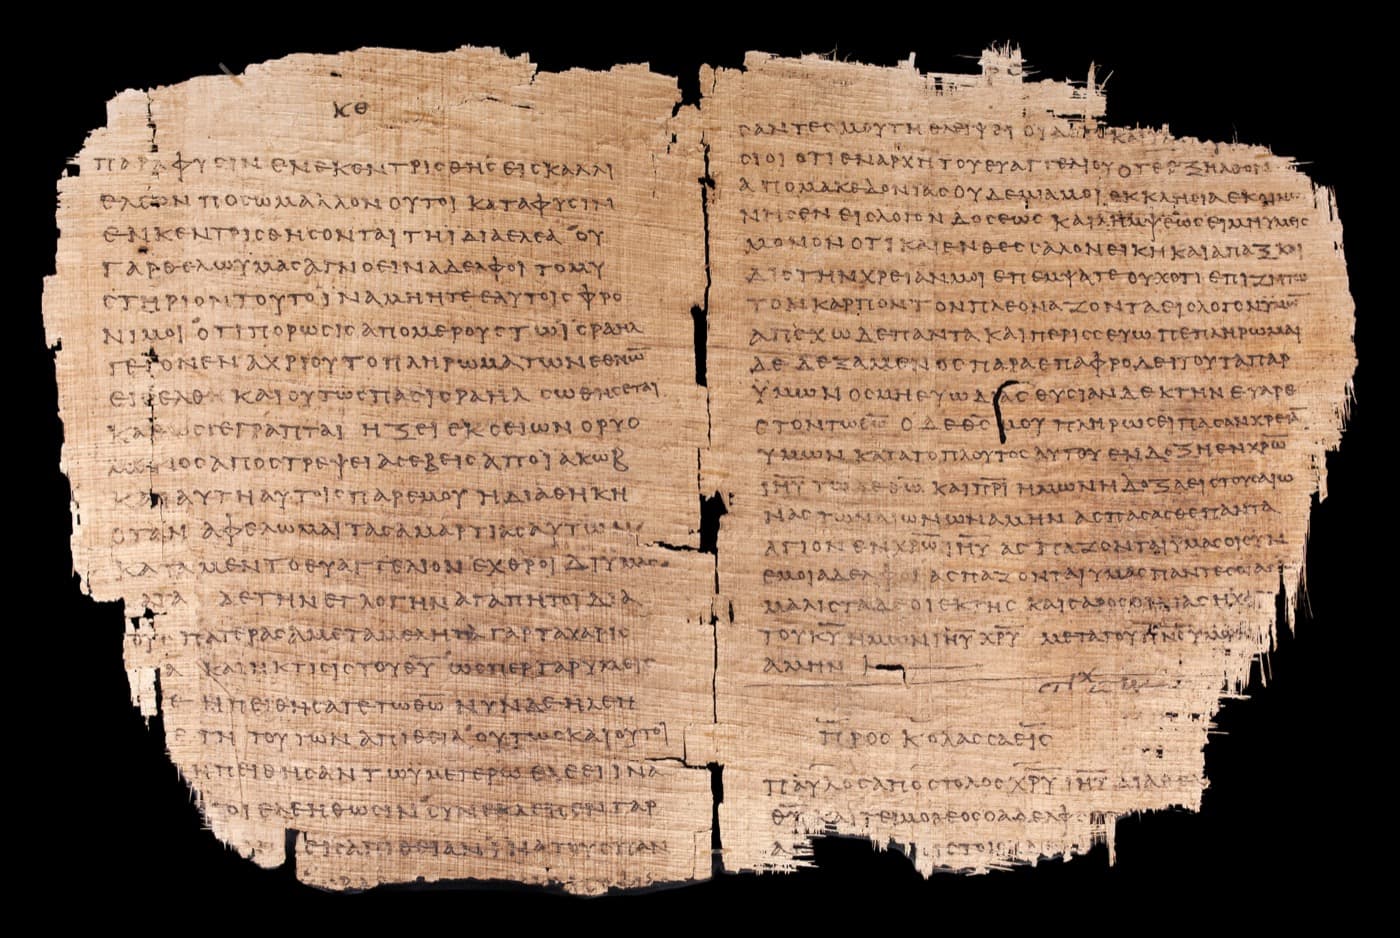 κθ
παρα φυσιν ενεκεντρισθης εις καλλι
ελεον ποσω μαλλον ουτοι κατα φυσιν
ενκεντρισθησονται τηι διαελεα ου
γαρ θελω υμας αγνοειν αδελφοι το μυ
στηριον τουτο ινα μη ητε εαυτοις φρο
νιμοι οτι πορωσις απο μερους τω ισραηλ
γεγονεν αχρι ου το πληρωμα των εθνω̅
εισελθη και ουτως πας ισραηλ σωθησεται
καθως γεγραπται ηξει εκ σειων ο ρυο
αποστρεψει ασεβεις απο ιακωβ
και αυτη αυτοις παρ εμου η διαθηκη
οταν αφελωμαι τας αμαρτιας αυτων
κατα μεν το ευαγγελιον εχθροι δι υμας
κατα δε την εγλογην αγαπητοι δια
τους πατερας αμεταμελητα γαρ τα χαρις
α και η κτισις του θ̅υ̅ ωσπερ γαρ υμεις
ηπειθησατε τω θ̅ω̅ νυν δε ηλεη
τη τουτων απιθεια ουτως και ουτοι
ηπειθησαν τω υμετερω ελεει ινα
οι ελεηθωσιν συνεκλεισεν γαρ
εις απιθειαν ινα τους παν
σαντες μου τη θλειψει οιδατε και
σιοι οτι εν αρχη του ευαγγελιου οτε εξηλθον
απο μακεδονιας ουδεμια μοι εκκλησια εκοινω
νησεν εις λογον δοσεως και λημψεως ει μη υμεις
μονον οτι και εν θεσσαλονεικη και απαξ και
δις την χρειαν μοι επεμψατε ουχ οτι επιζητω
τον καρπον τον πλεοναζοντα εις λογον υμω̅
απεχω δε παντα και περισσευω πεπληρωμαι
δε δεξαμενος παρα επαφροδειτου τα παρ
υμων οσμην ευωδιας θυσιαν δεκτην ευαρε
στον τω θ̅ω̅ ο δε θ̅ς̅ μου πληρωσει πασαν χρεια̅
υμων κατα το πλουτος αυτου εν δοξη εν χ̅ρ̅ω̅
ι̅η̅υ̅ τω δε θ̅ω̅ και π̅ρ̅ι̅ ημων η δοξα εις τους αιω
νας των αιωνων αμην ασπασασθε παντα
αγιον εν χ̅ρ̅ω̅ ι̅η̅υ̅ ασπαζονται υμας οι συν
εμοι αδελφοι ασπαζονται υμας παντες οι αγιοι
μαλιστα δε οι εκ της καισαρος οικιας η χαρις
του κ̅υ̅ ημων ι̅η̅υ̅ χ̅ρ̅υ̅ μετα του π̅ν̅ς̅ υμων
αμην
στιχ
προς κολασσαεις
παυλος αποστολος χ̅ρ̅υ̅ ι̅η̅υ̅ δια θε
θ̅υ̅ και τειμοθεος ο αδελφ